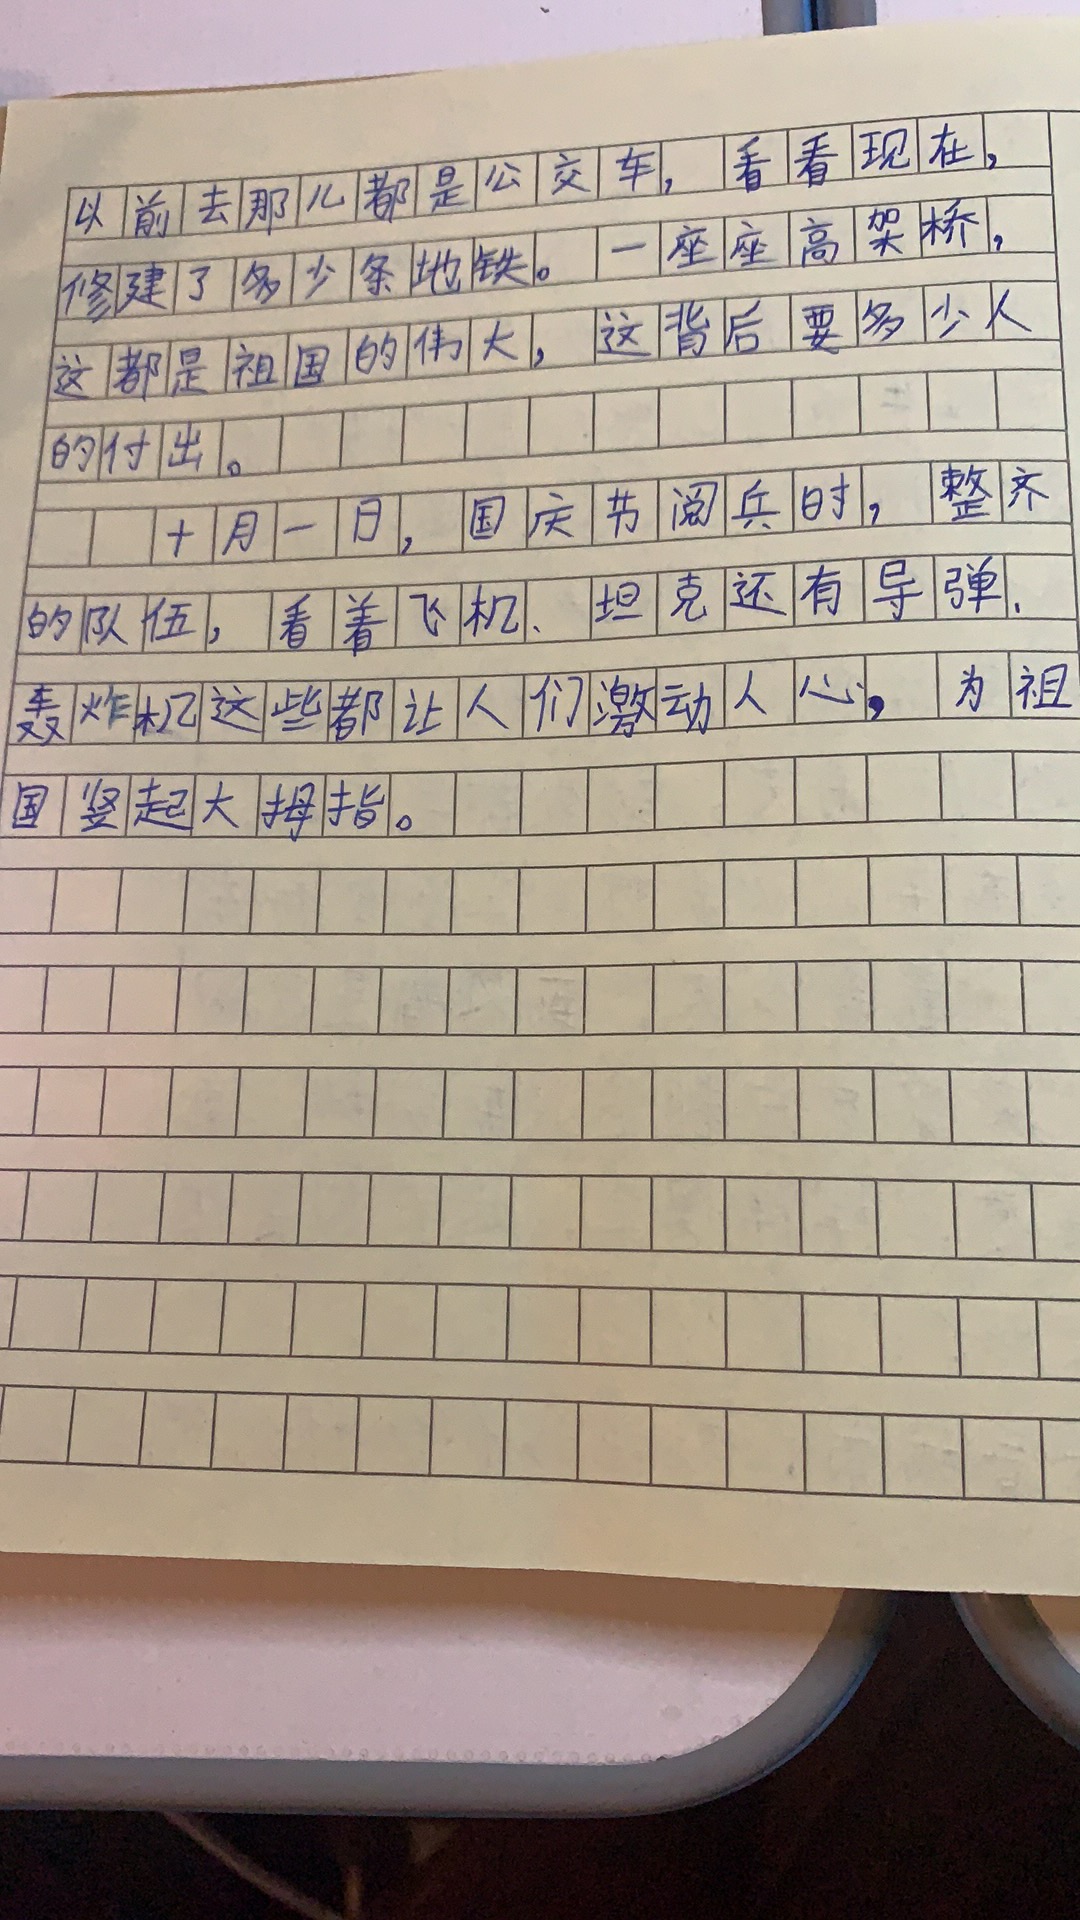 以前去那儿都是公交车，看看现在，
修建了多少条地铁。一座座高架桥，
这都是祖国的伟大，这背后要多少人
的付出。
十月一日，国庆节阅兵时，整齐
的队伍，看着飞机、坦克还有导弹、
轰炸机这些都让人们激动人心，为祖
国竖起大拇指。